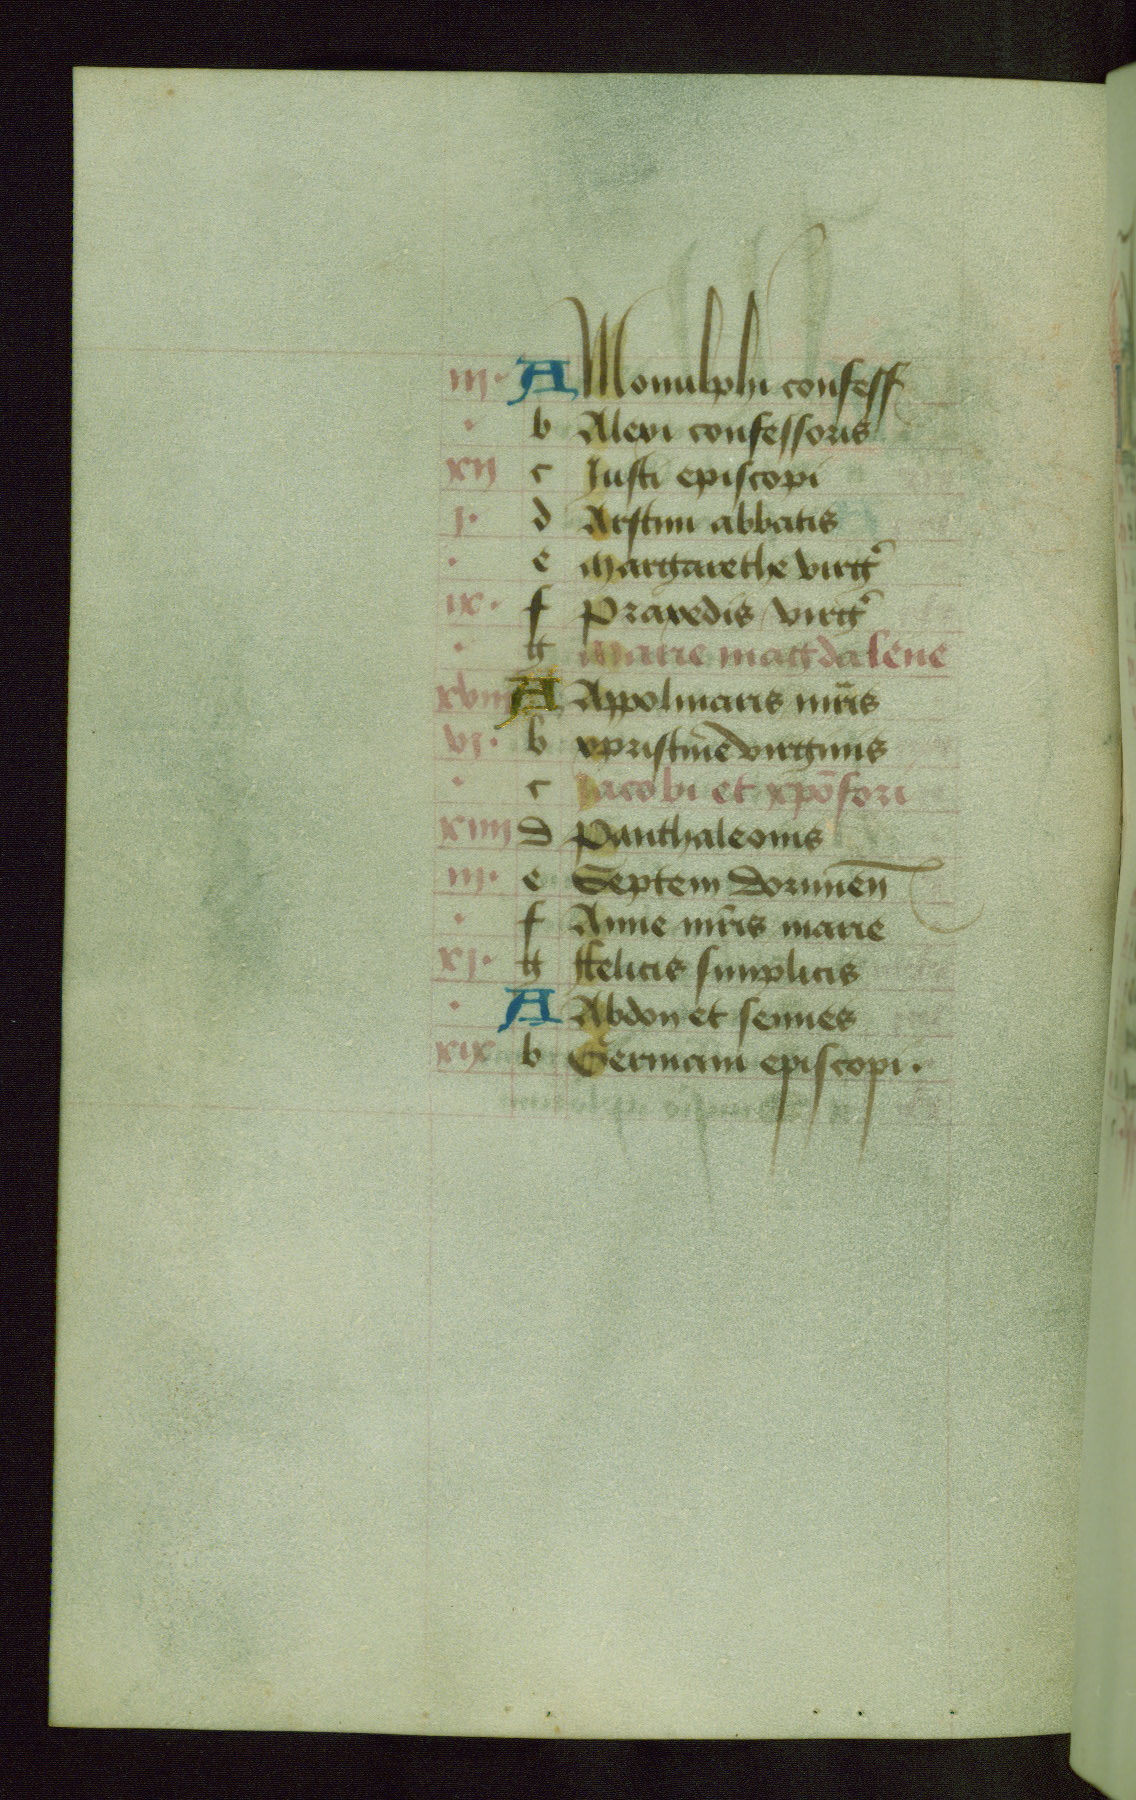 iij· A Monulphi confess
· b Alexi confessoris
xij c Justi episcopi
j· d Arstini abbatis
· e Margarethe virg
ix· f Praxedis virg
· g Marie magdalene
xviij A Appolinaris mris
vj· b xpristine virginis
· c Jacobi et xpofori
xiiij d Panthaleonis
iij· e Septem dormien
· f Anne mris marie
xj· g ffelicis simplicis
· A Abdon et sennes
xix b Germani episcopi·